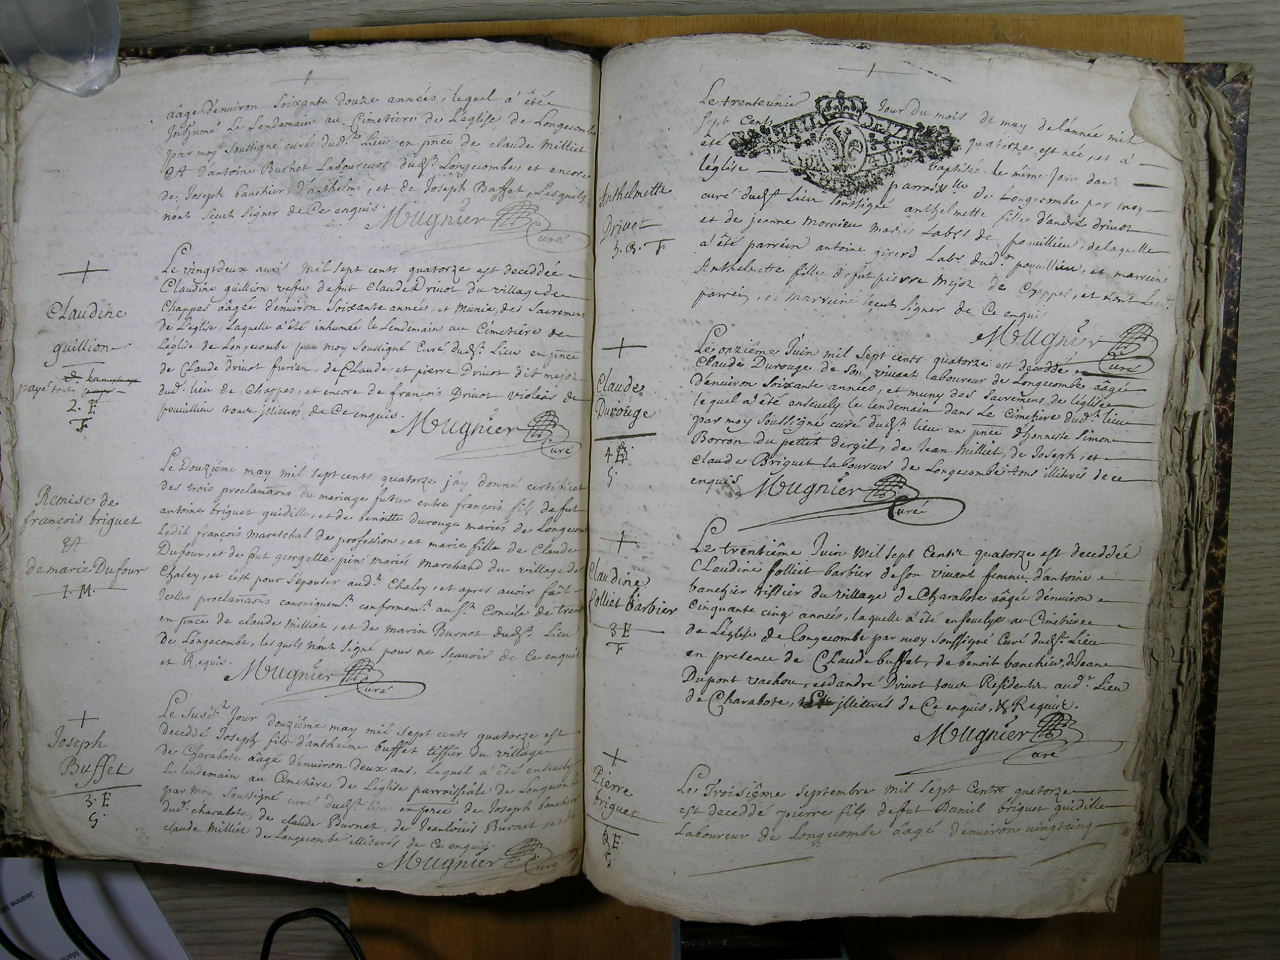 aâgé d'environ soixante douze années, lequel a été
Inhumé le lendemain au Cimetiere de L'eglise de Longecombe
par moy soussigné curé dud.t Lieu en pnce de claude Milliet
Et d'antoine Burnet Laboureurs dud.t Longecombe, et encore
de Joseph banchin d'anthelme, et de Joseph Buffet, Lesquels
n'ont sceut signer de Ce enquis.
Mugnier Curé
Claudine
guillion
payé tout
2. F
Le vingtdeux avril mil sept cents quatorze est deceddée
Claudine guillion vefve de fut Claude Drivot du village de
Chappes aâgée d'environ soixante années, et munie des Sacremens
de L'eglise, Laquelle a été inhumée le Lendemain au Cimetiere de
L'eglise de Longecombe par moy soussigné Curé dud.t Lieu en pnce
de Claude Drivot furien, de Claude, et pierre Drivot dit mejoz
dud.t lieu de Chappes, et encore de françois Drivot violais de
pouillieu tous illiteres de Ce enquis.
Mugnier Curé
Remise de
françois briguet
Et
de marie Dufour
1. M.
Le Douzième may mil sept cents quatorze j'ay donné certificat
des trois proclamaõns du mariage futur entre françois fils de fut
antoine briguet guidille, et de benoitte durouge mariés de Longecombe
Ledit françois marechal de profession, et marie fille de Claude
Dufour, et de fut georgette pin mariés marchand du village de
Chaley, et c'est pour s'épouser aud.t Chaley, et apres avoir fait
Icelles proclamaõns canoniquem.t conformem.t au S.t Concile de trente
en pnce de claude Milliet, et de marin Burnet dud.t Lieu
De Longecombe, lesquels n'ont signé pour ne scavoir de Ce enquis
et Requis.
Mugnier Curé
Joseph
Buffet
3. E
Le susd.t Jour douzième may mil sept cents quatorze est
deceddé Joseph fils d'anthelme buffet tissier du village
de Charabote aagé d'environ deux ans, Lequel a été ensevely
Le lendemain au Cimetiere de L'eglise parroissiale de Longecombe
par moy soussigné curé dud.t lieu en pnce de Joseph banchin
dud.t charabote, de claude Burnet, de Jeanlouis Burnet
claude Milliet de Longecombe illiteres de Ce enquis
Mugnier Curé
Anthelmette
Drivot
Le trenteunie Jour du mois de may de L'année mil
sept cents quatorze est née, et a
été baptisée le meme Jour dans
L'église parroisse de Longecombe par moy
curé dud.t Lieu soussigné anthelmette fille d'andré drivot
et de jeanne mornieu mariés Labrs de pouillieu, de laquelle
a été parrein antoine girerd Labr dud.t pouillieu, et marreine
Anthelmette fille de fut pierre Mejoz de Chappes, et n'ont Les
parrein, et Marreine sceut signer de Ce enquis
Mugnier Curé
Claude
Durouge
Le onzième Juin mil sept cents quatorze est deceddé
Claude Durouge de son vivant laboureur de Longecombe aâgé
d'environ soixante années, et muny des Sacremens de L'eglise
lequel a été ensevely le lendemain dans Le Cimetiere du dt lieu
par moy soussigné curé dud.t lieu en pnce d'honneste Simon
Borron du pettit dergit, de Jean Milliet, de Joseph, et
claude Briguet laboureur de Longecombe tous illiteres de ce
enquis
Mugnier Curé
Claudine
folliet barbier
3 E
Le trentième Juin Mil sept Cents quatorze est deceddée
Claudine folliet barbier de son vivant femme d'antoine
banchin tissier du village de Charabote aagée d'environ
Cinquante cinq années, laquelle a été ensevelye au Cimetiere
de L'église de Longecombe par moy soussigné Curé dud.t Lieu
en presence de Claude buffet, de benoit banchin, de Jean
Dupont vachou, et d'andré Drivot tous Residents aud.t Lieu
de Charabote, illiteres de Ce enquis, & Requis.
Mugnier Curé
Pierre
briguet
Le Troisième Septembre mil Sept Cents quatorze
est deceddé pierre fils de fut Daniel briguet guidille
Laboureur de Longecombe aagé d'environ vingtcinq